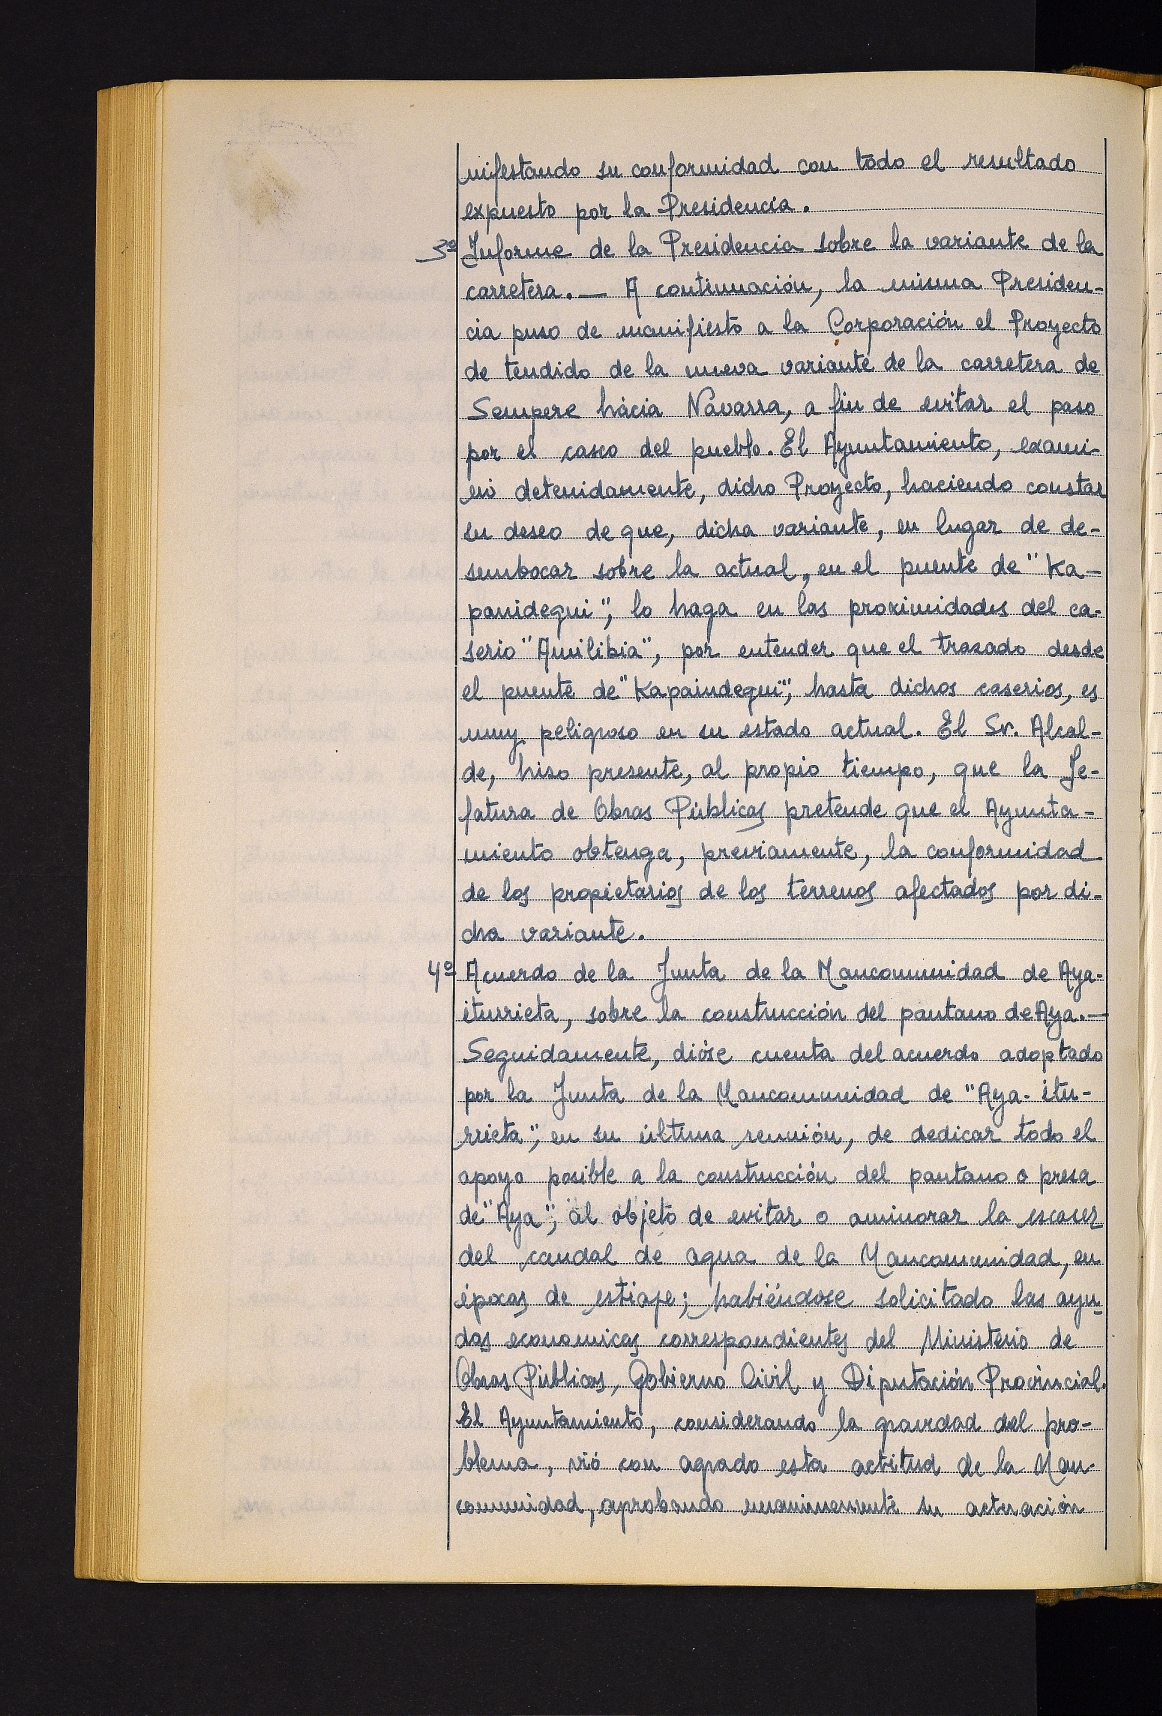 nifestando su conformidad con todo el resultado
expuesto por la Presidencia.
3º Informe de la Presidencia sobre la variante de la
carretera.— A continuación, la misma Presiden-
cia puso de manifiesto a la Corporación el Proyecto
de tendido de la nueva variante de la carretera de
Sempere hácia Navarra, a fin de evitar el paso
por el casco del pueblo. El Ayuntamiento, exami-
nó detenidamente, dicho Proyecto, haciendo constar
su deseo de que, dicha variante, en lugar de de-
sembocar sobre la actual, en el puente de "Ka-
panidegui", lo haga en las proximidades del ca-
serio "Amilibia", por entender que el trazado desde
el puente de "Kapaindegui", hasta dichos caserios, es
muy peligroso en su estado actual. El Sr. Alcal-
de, hiso presente, al propio tiempo, que la Je-
fatura de Obras Públicas pretende que el Ayunta-
miento obtenga, previamente, la conformidad
de los propietarios de los terrenos afectados por di-
cha variante.
4º Acuerdo de la Junta de la Mancomunidad de Aya-
iturrieta, sobre la construcción del pantano de Aya.—
Seguidamente, dióse cuenta del acuerdo adoptado
por la Junta de la Mancomunidad de "Aya-itu-
rrieta", en su última reunión, de dedicar todo el
apoyo posible a la construcción del pantano o presa
de "Aya", al objeto de evitar o aminorar la escasez
del caudal de agua de la Mancomunidad, en
épocas de estiaje; habiéndose solicitado las ayu-
das economicas correspondientes del Ministerio de
Obras Públicas, Gobierno Civil y Diputación Provincial.
El Ayuntamiento, considerando la gravedad del pro-
blema, vió con agrado esta actitud de la Man-
comunidad, aprobando unanimemente su actuación